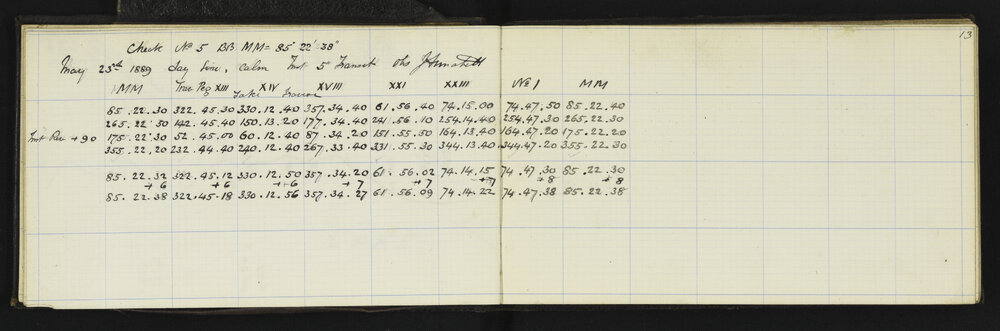 13
Check No 5 BB MM = 85° 22' 38"
May 25th 1889 day fine, calm Inst 5 Transit Obs
MM Trav Peg XIII XIV XVIII XXI XXIII No 1 MM
85.22.30 322.45.30 330.12.40 357.34.40 61.56.40 74.15.00 74.47.50 85.22.40
265.22.50 142.45.40 150.13.20 177.34.40 241.56.10 254.14.40 254.47.30 265.22.30
Inst Rev + 90 175.22.30 52.45.00 60.12.40 87.34.20 151.55.50 164.13.40 164.47.20 175.22.20
355.22.20 232.44.40 240.12.40 267.33.40 331.55.30 344.13.40 344.47.20 355.22.30
85.22.32 322.45.12 330.12.50 357.34.20 61.56.02 74.14.15 74.47.30 85.22.30
+6 +6 +6 +7 +7 +7 +8 +8
85.22.38 322.45.18 330.12.56 357.34.27 61.56.09 74.14.22 74.47.38 85.22.38